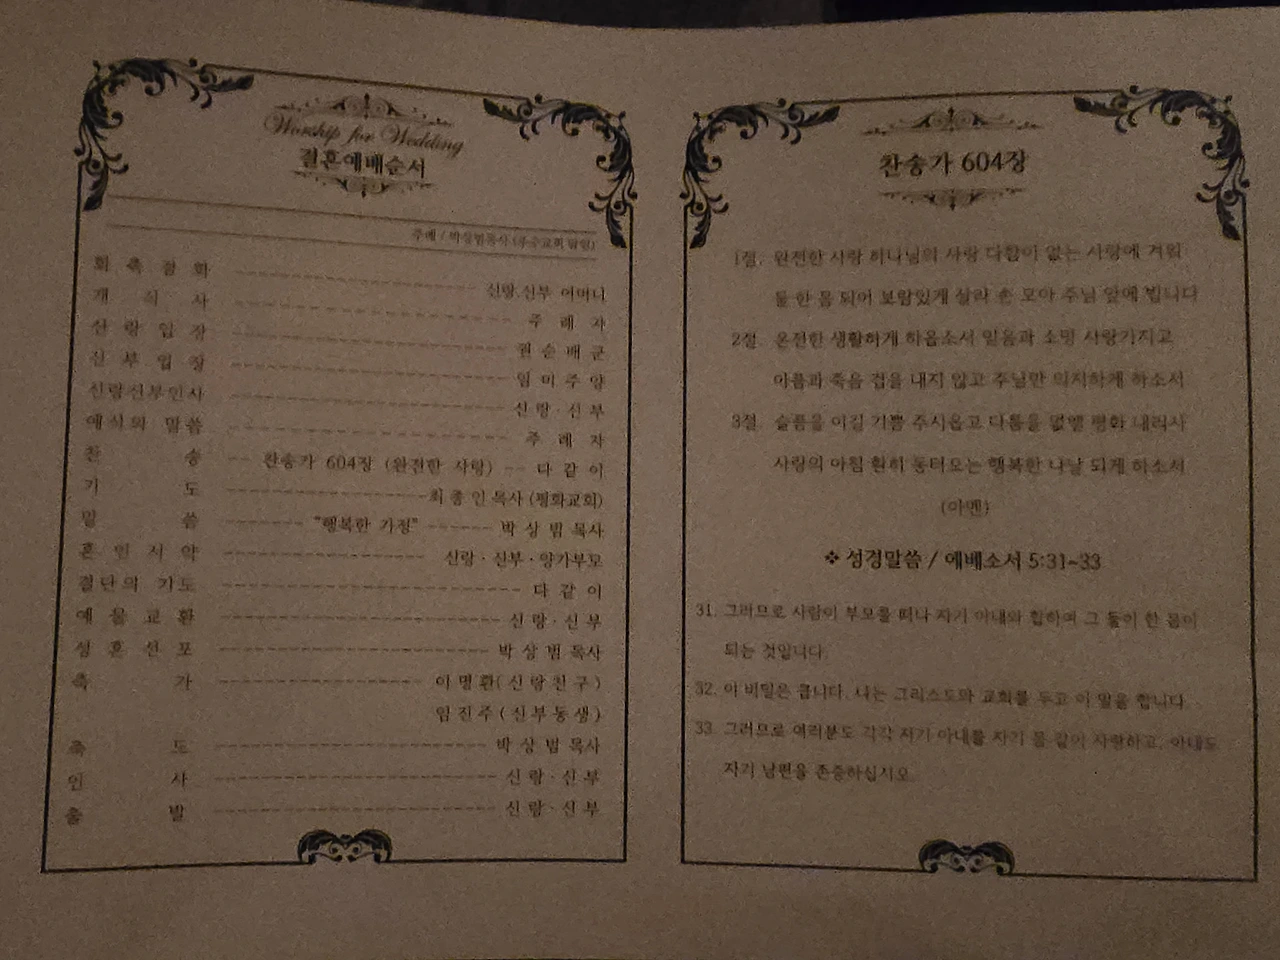 Worship for Wedding
결혼예배순서
주례 / 박상범목사
화촉점화 신랑.신부 어머니
개식사 주례자
신랑입장 권순배군
신부입장 임미주양
신랑신부인사 신랑·신부
예식의 말씀 주례자
찬송 찬송가 604장 (완전한 사랑) 다같이
기도 최종인목사 (평화교회)
말씀 "행복한 가정" 박상범목사
혼인서약 신랑·신부·양가부모
결단의 기도 다같이
예물교환 신랑·신부
성혼선포 박상범목사
축가 이명환(신랑친구)
임진주(신부동생)
축도 박상범목사
인사 신랑·신부
출발 신랑·신부
찬송가 604장
1절. 완전한 사랑 하나님의 사랑 다함이 없는 사랑에 겨워
둘 한 몸 되어 보람있게 살라 손 모아 주님 앞에 빕니다
2절. 온전한 생활하게 하옵소서 믿음과 소망 사랑가지고
아픔과 죽음 겁을 내지 않고 주님만 의지하게 하소서
3절. 슬픔을 이길 기쁨 주시옵고 다툼을 없앨 평화 내리사
사랑의 아침 환히 동터오는 행복한 나날 되게 하소서
(아멘)
❖ 성경말씀 / 에베소서 5:31~33
31. 그러므로 사람이 부모를 떠나 자기 아내와 합하여 그 둘이 한 몸이
되는 것입니다.
32. 이 비밀은 큽니다. 나는 그리스도와 교회를 두고 이 말을 합니다.
33. 그러므로 여러분도 각각 자기 아내를 자기 몸 같이 사랑하고, 아내도
자기 남편을 존중하십시오.